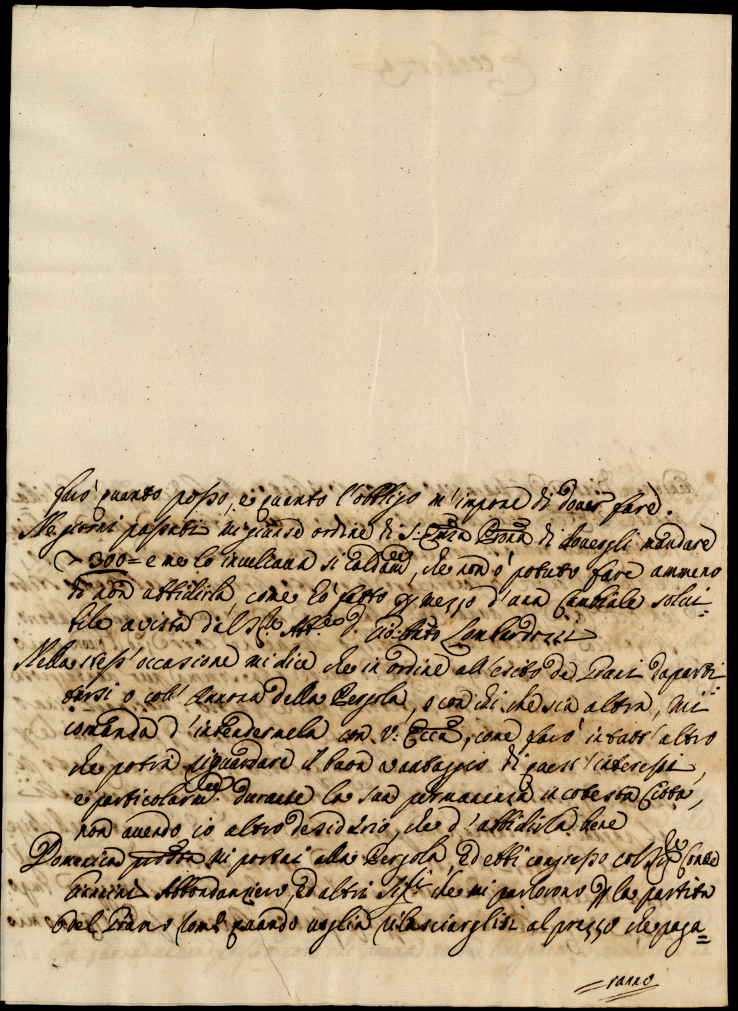 farò quanto posso, e quanto l'obbligo m'impone di dover fare.
Ne giorni passati mi giunse ordine di S. Ecc.za Pñna di dovergli mandare
300= e me lo inculcava sì caldam.te, che non ò potuto fare ammeno
di non ubbidirla come hò fatto p mezzo d'una Cambiale
bile avista dal Sig.re Ab.e D. Lombardozzi
Nella stess'occasione mi dice che in ordine all'esito de Grani da parti
tarsi o coll'Annona della Pergola, o con chi che sia altra, mi
comanda d'intendermela con V. Ecc.za, come farò in tutt'altro
che potrà riguardare il buon vantaggio di quest'interessi,
e particolarm.te durante la sua permanenza in cotesta Città,
non avendo io altro desiderio, che d'ubbidirla bene
Domenica mi portai alla Pergola, ed ebbi congresso col Sig.re Conte
Giannini Abbondanziere, ed altri Sig.ri che mi parlorono p la partita
del Grano Com.e quando voglia rilasciarglisi al prezzo che paga=
=ranno